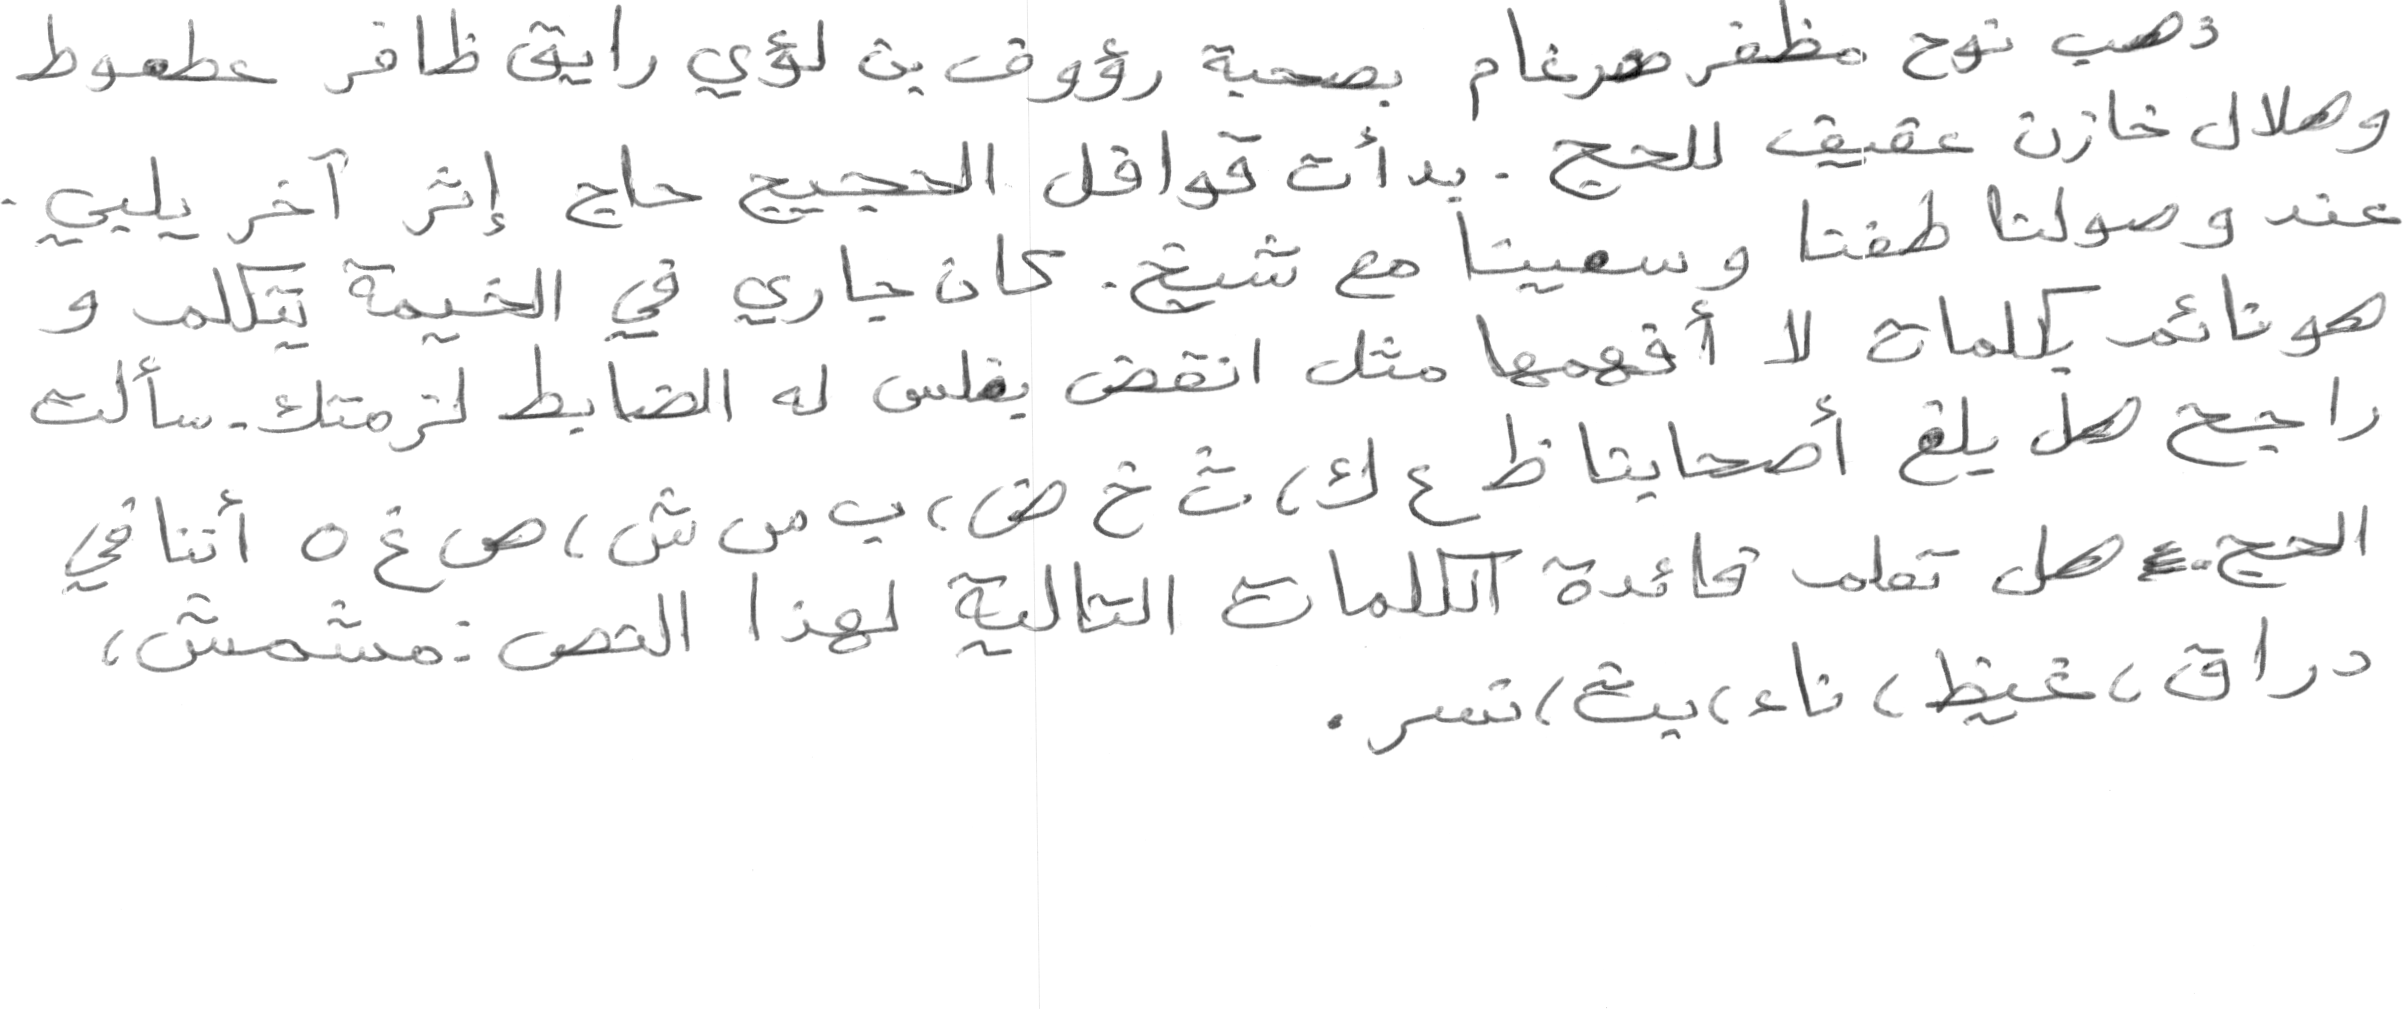 ذهب نوح مظفر ضرغام بصحبة رؤوف بن لؤي رايق ظافر عطعوط
وهلال خازن عقيق للحج. بدأت قوافل الحجيج حاج إثر آخر يلبي.
عند وصولنا طفنا وسعينا مع شيخ. كان جاري في الخيمة يتكلم و
هو نائم بكلمات لا أفهمها مثل انقض بغلس له الضابط لترمتك. سألت
راجح هل بلغ أصحابنا ظ ع ك، ث خ ض، ب س ش، ص غ ه أننا في
الحج. هل تعلم فائدة الكلمات التالية لهذا النص: مشمش،
دراق، غيظ، ناء، بث، نسر.